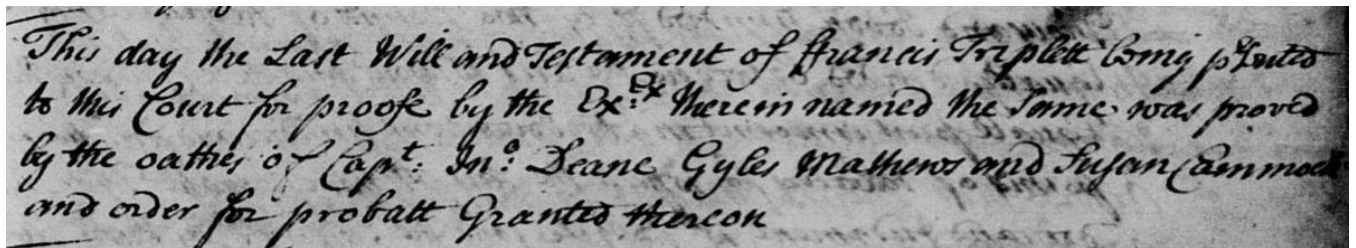 This day the Last Will and Testament of ffrancis Triplett being p^rsented
to this Court for proofe by the Ex:^Ex therein named the same was proved
by the oathes of Cap^t: Jn^o: Deane Gyles Mathews and Susan Cammock
and order for probatt Granted thereon